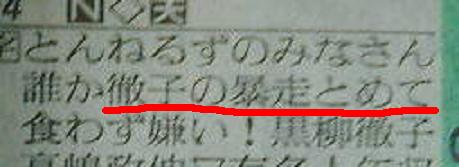 4 N 天
とんねるずのみなさん
誰か徹子の暴走とめて
食わず嫌い！黒柳徹子